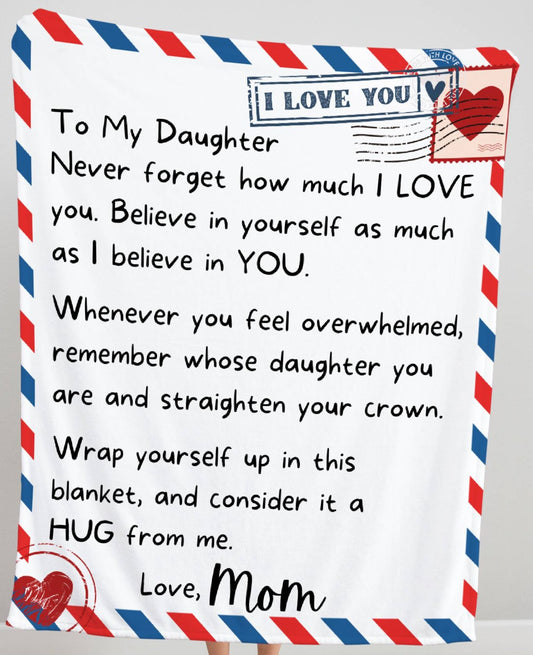 I LOVE YOU
To My Daughter
Never forget how much I LOVE
you. Believe in yourself as much
as I believe in YOU.
Whenever you feel overwhelmed,
remember whose daughter you
are and straighten your crown.
Wrap yourself up in this
blanket, and consider it a
HUG from me.
Love, Mom